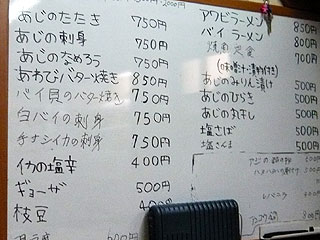 あじのたたき 750円
あじの刺身 750円
あじのなめろう 750円
あわびバター焼き 850円
バイ貝のバター焼き 750円
白バイの刺身 750円
チナシイカの刺身 750円
イカの塩辛 400円
ギョーザ 500円
枝豆
アワビラーメン 850円
バイラーメン 800円
焼肉定食 700円
(味噌汁・漬物付き)
あじのみりん漬け 500円
あじのひらき 500円
あじの丸干し 500円
塩さば 500円
塩さんま 500円